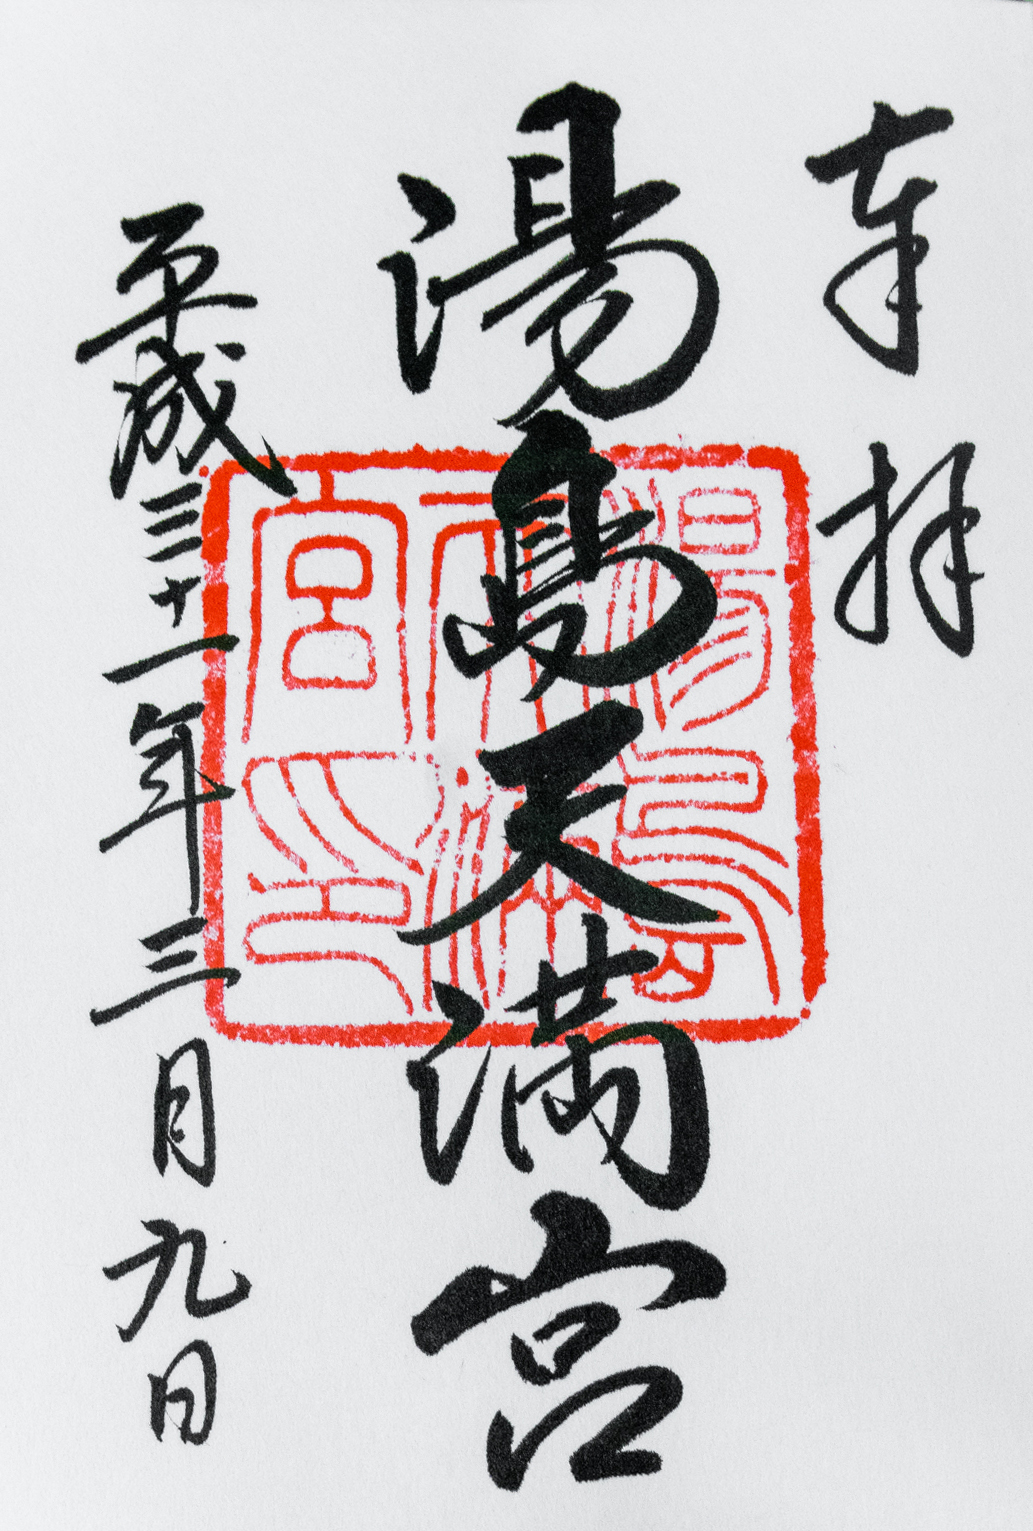 奉拝
湯島天満宮
平成三十一年三月九日
湯島天満宮印